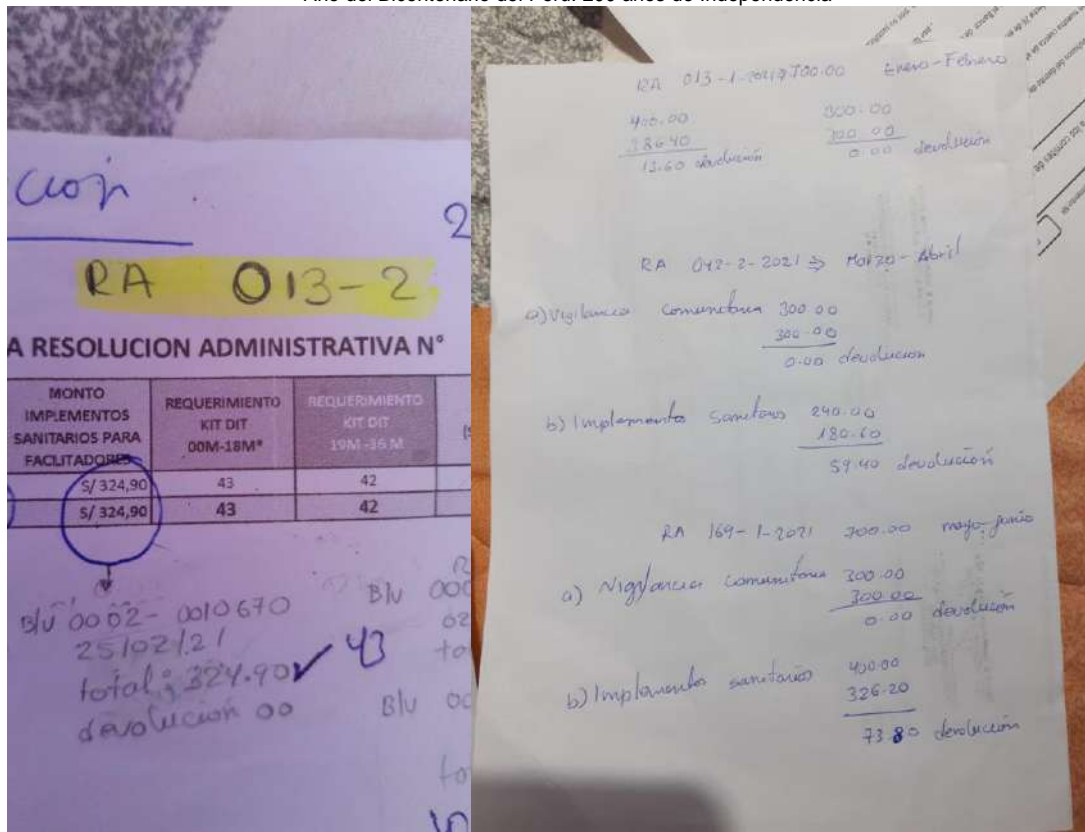 Año del Bicentenario del Perú: 200 años de Independencia
cion
2
RA 013-2
A RESOLUCION ADMINISTRATIVA N°
MONTO IMPLEMENTOS SANITARIOS PARA FACLITADORES
REQUERIMIENTO KIT DIT 00M-18M*
REQUERIMIENTO KIT DIT 19M-36 M
S/ 324,90 43 42
S/ 324,90 43 42
B/v 0002-0010670
25/02/21
total: 324.90 ✓ 43
devolucion 00
B/v 000
02
to
B/v 00
to
RA 013-1-2021 700.00 Enero-Febrero
400.00
386.40
13.60 devolución
300.00
300.00
0.00 devolución
RA 042-2-2021 => Marzo-Abril
a) Vigilancia comunitaria 300.00
300.00
0.00 devolucion
b) Implementos sanitarios 240.00
180.60
59.40 devolución
RA 169-1-2021 700.00 mayo-junio
a) Vigilancia comunitaria 300.00
300.00
0.00 devolución
b) Implementos sanitarios 400.00
326.20
73.80 devolución